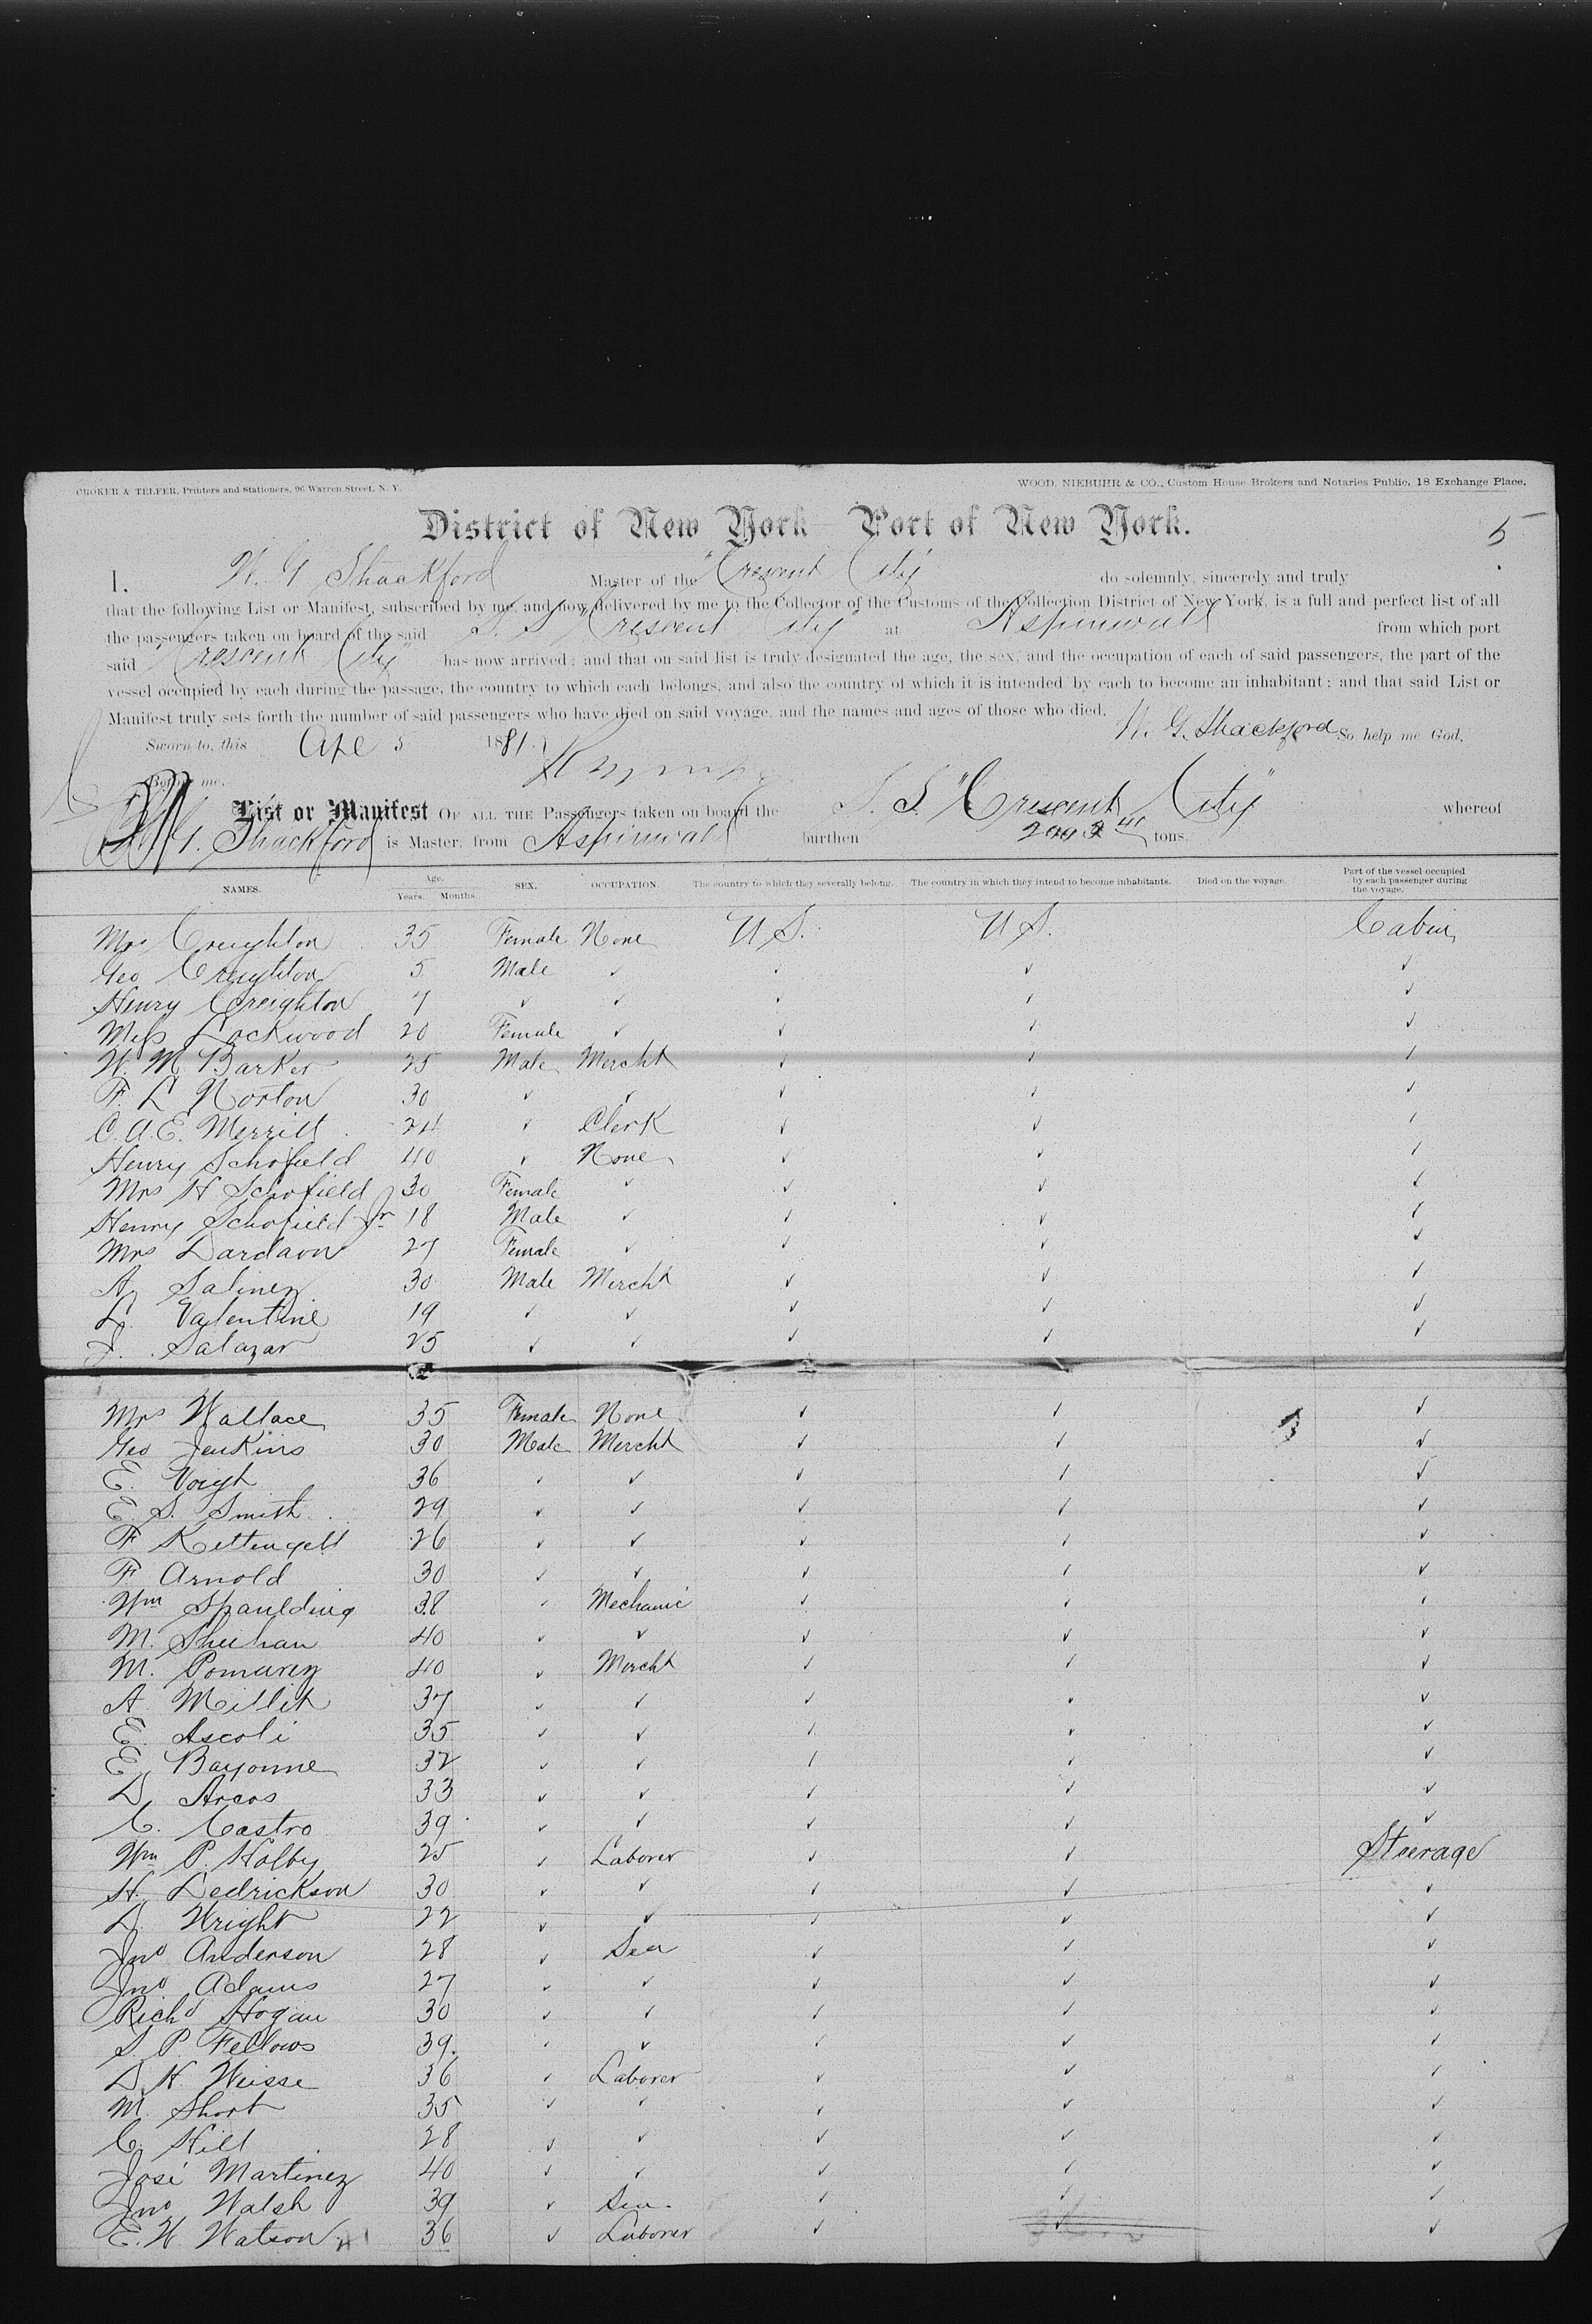 CROKER & TELFER, Printers and Stationers, 96 Warren Street, N. Y.
WOOD, NIEBUHR & CO., Custom House Brokers and Notaries Public, 18 Exchange Place.
District of New York Port of New York.
5
I, W. G Shackford Master of the "Crescent City" do solemnly, sincerely and truly
that the following List or Manifest, subscribed by me, and now delivered by me to the Collector of the Customs of the Collection District of New York, is a full and perfect list of all
the passengers taken on board of the said S. S "Crescent City" at Aspinwall from which port
said "Crescent City" has now arrived; and that on said list is truly designated the age, the sex, and the occupation of each of said passengers, the part of the
vessel occupied by each during the passage, the country to which each belongs, and also the country of which it is intended by each to become an inhabitant; and that said List or
Manifest truly sets forth the number of said passengers who have died on said voyage, and the names and ages of those who died.
W. G. Shackford So help me God.
Sworn to, this Apl 5 1881.
Before me,
List or Manifest OF ALL THE Passengers taken on board the S. S. "Crescent City" whereof
W. G. Shackford is Master, from Aspinwall burthen tons.
NAMES. Age. Years. Months. SEX. OCCUPATION. The country to which they severally belong. The country in which they intend to become inhabitants. Died on the voyage. Part of the vessel occupied by each passenger during the voyage.
Mrs Creighton 35 Female None U S. U S. Cabin
Geo Creighton 5 Male ✓ ✓ ✓ ✓
Henry Creighton 7 ✓ ✓ ✓ ✓ ✓
Miss Lockwood 20 Female ✓ ✓ ✓ ✓
W. M. Barker 25 Male Mercht ✓ ✓ ✓
F. L Norton 30 ✓ ✓ ✓ ✓ ✓
C. A. E. Merrill 24 ✓ Clerk ✓ ✓ ✓
Henry Schofield 40 ✓ None ✓ ✓ ✓
Mrs H Schofield 30 Female ✓ ✓ ✓ ✓
Henry Schofield Jr 18 Male ✓ ✓ ✓ ✓
Mrs Dardaon 27 Female ✓ ✓ ✓ ✓
A. Salinez 30 Male Mercht ✓ ✓ ✓
L. Valentine 19 ✓ ✓ ✓ ✓ ✓
J. Salazar 25 ✓ ✓ ✓ ✓ ✓
Mrs Wallace 35 Female None ✓ ✓ ✓
Geo Jenkins 30 Male Mercht ✓ ✓ ✓
E. Voigt 36 ✓ ✓ ✓ ✓ ✓
E. S. Smith 29 ✓ ✓ ✓ ✓ ✓
F. Kettengell 26 ✓ ✓ ✓ ✓ ✓
F. Arnold 30 ✓ ✓ ✓ ✓ ✓
Wm Spaulding 38 ✓ Mechanic ✓ ✓ ✓
M. Sheehan 40 ✓ ✓ ✓ ✓ ✓
M. Pomarez 40 ✓ Mercht ✓ ✓ ✓
A Millit 37 ✓ ✓ ✓ ✓ ✓
E. Ascoli 35 ✓ ✓ ✓ ✓ ✓
E. Bayonne 32 ✓ ✓ ✓ ✓ ✓
D. Arcos 33 ✓ ✓ ✓ ✓ ✓
C. Castro 39 ✓ ✓ ✓ ✓ ✓
Wm P. Kolby 25 ✓ Laborer ✓ ✓ Steerage
H. Dedrickson 30 ✓ ✓ ✓ ✓ ✓
D. Wright 22 ✓ ✓ ✓ ✓ ✓
Jno Anderson 28 ✓ Sea ✓ ✓ ✓
Jno Adams 27 ✓ ✓ ✓ ✓ ✓
Richd Hogan 30 ✓ ✓ ✓ ✓ ✓
S. P. Fellows 39. ✓ ✓ ✓ ✓ ✓
D. H. Weisse 36 ✓ Laborer ✓ ✓ ✓
M. Short 35 ✓ ✓ ✓ ✓ ✓
C. Hill 28 ✓ ✓ ✓ ✓ ✓
José Martinez 40 ✓ ✓ ✓ ✓ ✓
Jno Walsh 39 ✓ Sea. ✓ ✓ ✓
E. W. Watson 36 ✓ Laborer ✓ ✓ ✓